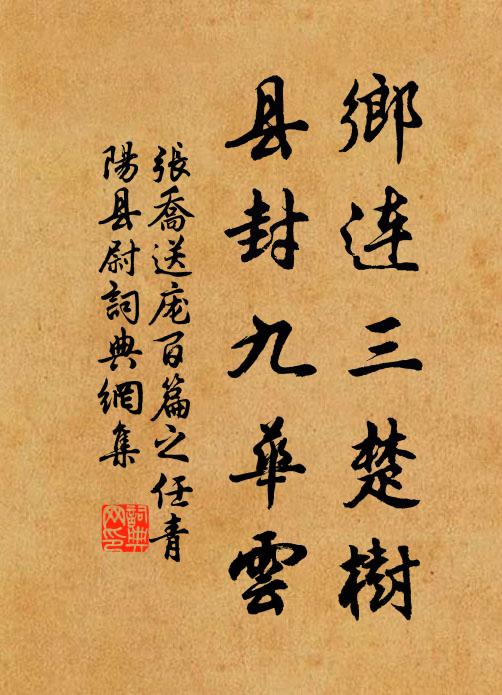 鄉连三楚樹
县封九華雲
張喬送庞百篇之任青
陽县尉詞典網集
詞典
网印